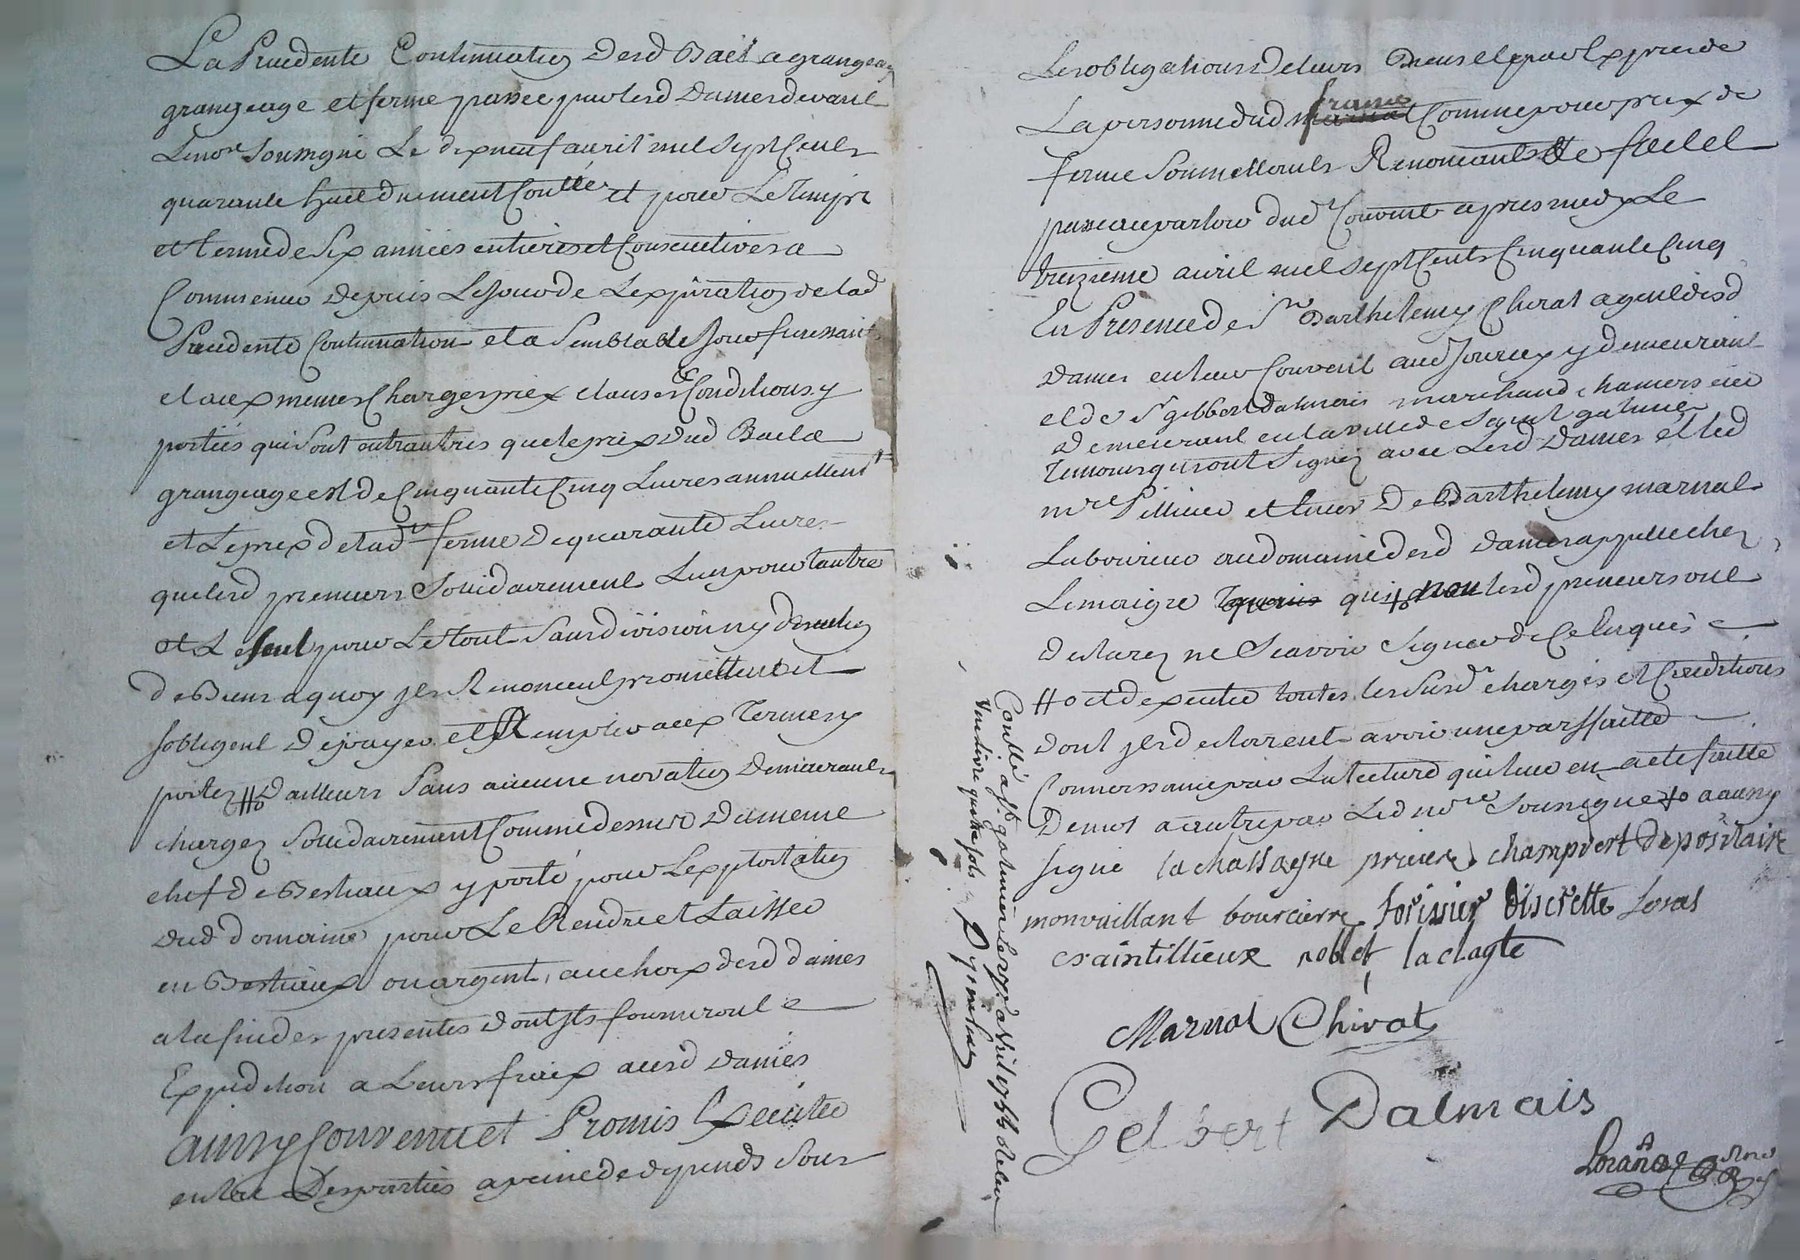 La Precedente Continuation desd Bail a grangeage
grangeage et ferme passee par lesd Dames devant
Le nore Soussigné Le dixneuf avril mil Sept Cents
quarante huit duement Conllé et pour Le Temps
et Terme de Six années entieres et Consecutives a
Commencer depuis Le Jour de Lexpiration de lad
Precedente Continuation et a Semblable Jour finissants
et aux memes Charges prix clauses & Conditions y
portées qui Sont entrautres que le prix dud Bail a
grangeage est de Cinquante Cinq Livres annuellemt
et Le prix de lad ferme de quarante Livres
que lesd preneurs Solidairement Lun pour Lautre
et L seul pour Le tout Sans division ny discution
de Biens a quoy ils Renoncent promettent et
sobligent de payer et Remplir aux Termes y
portez #o Dailleurs Sans aucune novation Demeurants
chargez Solidairement Comme dessus Du meme
chef de Bestiaux y porté pour Lexploitation
dud domaine pour Le Rendre et Laisser
en Bestiaux ou argent, au choix desd dames
a la fin des presentes dont ils fourniront
Expedition a Leurs fraix auxd Dames
ainsy Convenu et Promis Executer
entre Des parties a peine de depends Sous
Les obligations de Leurs Biens et par Exprès de
La personne dud Marnat frame Comme pour prix de
ferme Soumettants Renonceants & fait et
passé au parloir dud Couvent apres midy Le
treizieme avril mil Sept Cents Cinquante Cinq
En Presence de Sr Barthelemy Chirat agent desd
Dames en leur Couvent aud Jourcey y demeurant
et de Sr gilbert Dalmais marchand chamoiseur
Demeurant en la ville de Saint galmier
Temoins qui ont Signez avec Lesd Dames et led
mre et tuteur De Barthelemy marnat
Laboureur au domaine desd dames appellé chez
Lemaigre qui #o non lesd preneurs ont
declarez ne Scavoir Signer de Ce Enquis
#o et dexecuter toutes les Susd charges et Conditions
dont ils declarent avoir une parffaitte
Connoissance par La lecture qui leur en a eté faitte
De mot a autre par Led nore Sousigné #o a ainsy
signé la chassaigne prieure champvert depositaire
monvaillant bourcierre forissier discrette Loras
csaintillieux noblet laclaste
Marnat Chirat
Gelbert Dalmais
Conllé a St galmier le 25e avril 1755 Recu
Une livre quatre sols